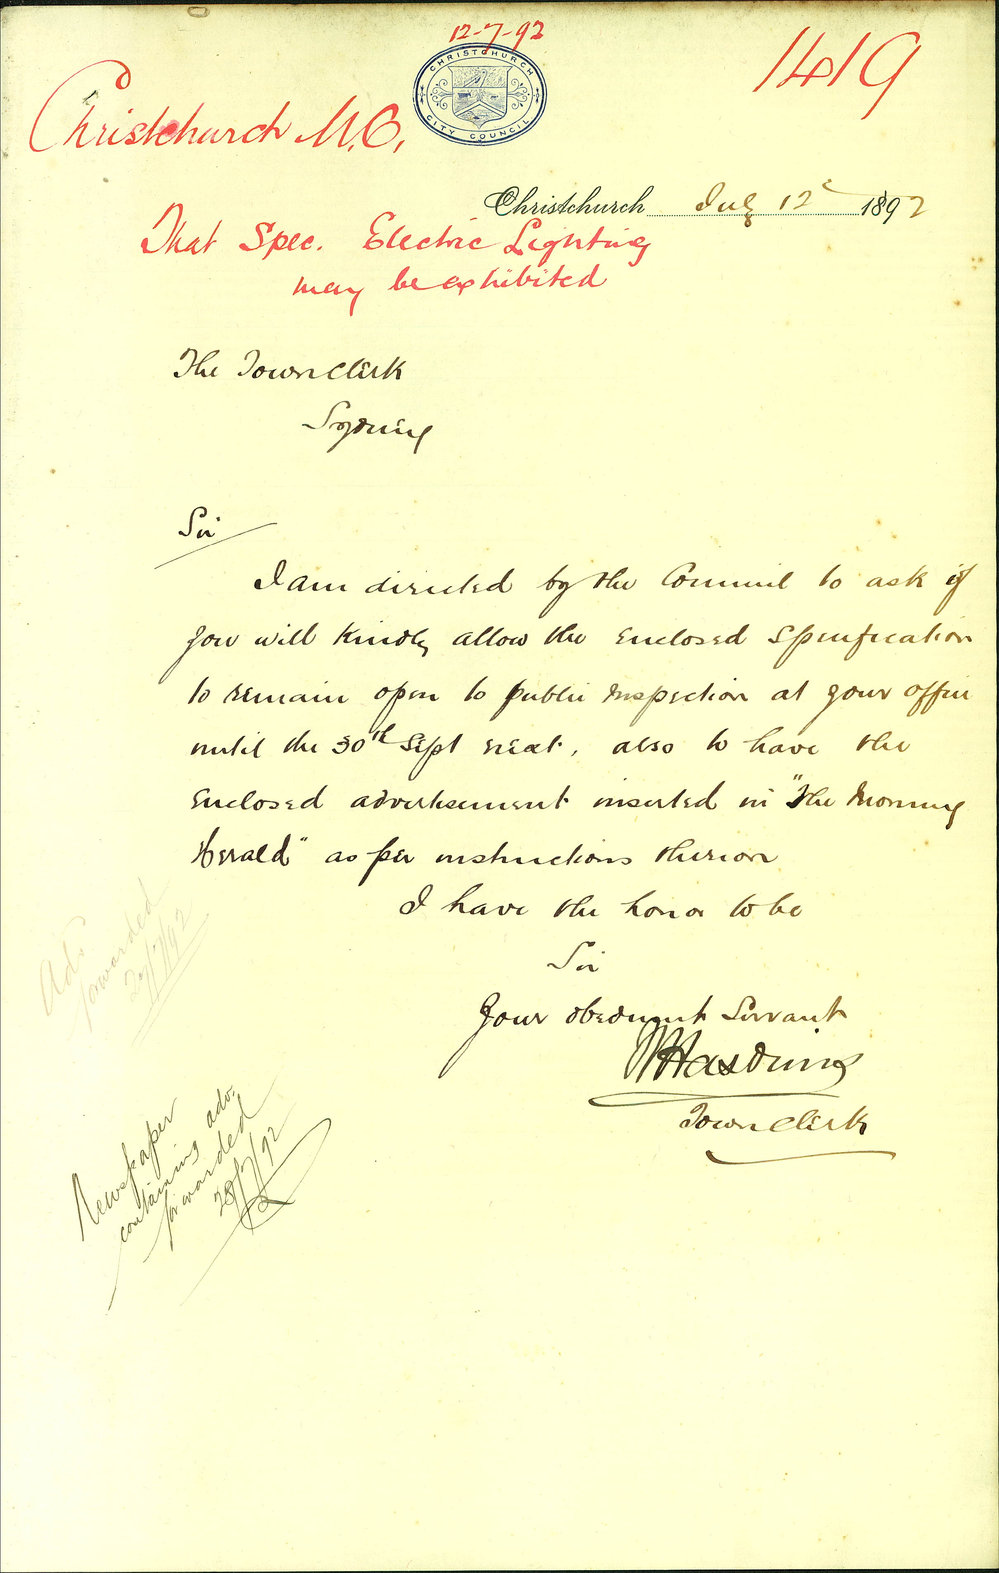 12-7-92
1419
CHRISTCHURCH
CITY COUNCIL
Christchurch M.C.
Christchurch July 12 1892
That Spec. Electric Lighting
may be exhibited
The Town Clerk
Sydney
Sir
I am directed by the Council to ask if
you will kindly allow the enclosed Specification
to remain open to public inspection at your office
until the 30th Sept next, also to have the
enclosed advertisement inserted in "The Morning
Herald" as per instructions thereon
I have the honor to be
Sir
Your obedient Servant
Haskins
Town Clerk
Adv.
forwarded
27/7/92
Newspaper
containing adv.
forwarded
28/7/92